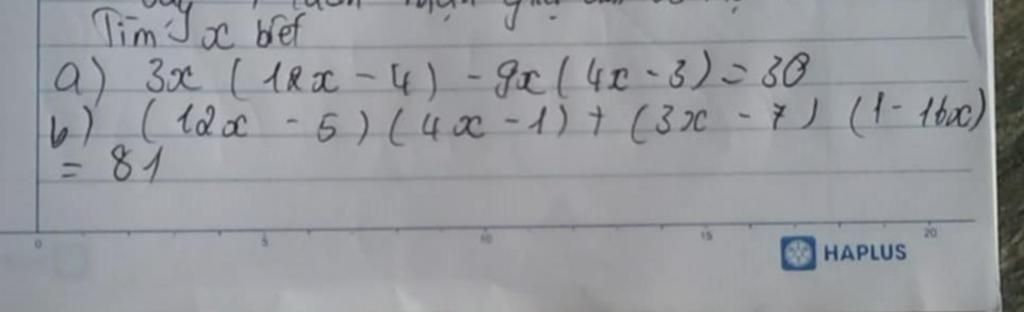 Tìm x biết
a) 3x (12x - 4) - 9x (4x - 3) = 30
b) (12x - 5) (4x - 1) + (3x - 7) (1 - 16x)
= 81
0 5 10 15 20
HAPLUS